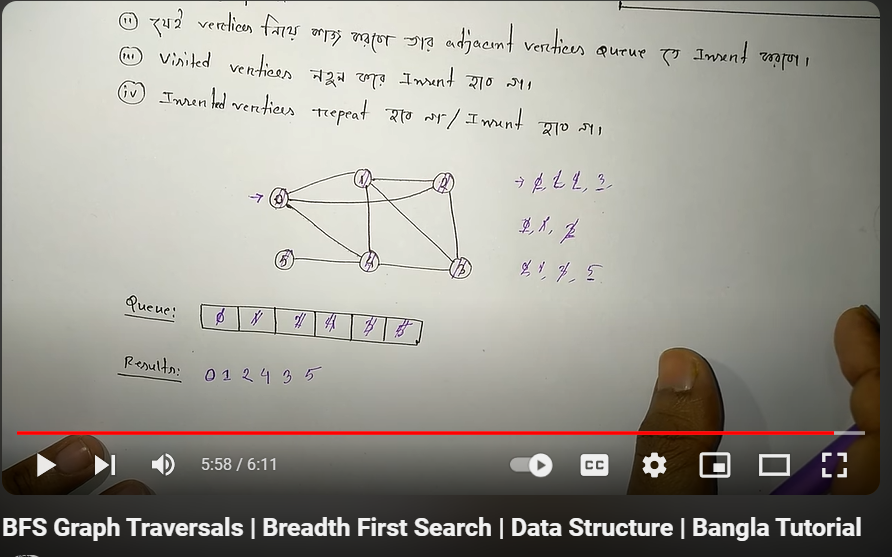 (ii) যেই vertices নিয়ে কাজ করবো তার adjacent vertices queue তে Insert করবো।
(iii) Visited vertices নতুন করে Insert হবে না।
(iv) Inserted vertices repeat হবে না / Insert হবে না।
0 1 2
5 4 3
→ 0, 4, 2, 3
0, 1, 3
0 1, 3, 5
Queue: 0 1 2 4 3 5
Results: 0 1 2 4 3 5
5:58 / 6:11
CC
BFS Graph Traversals | Breadth First Search | Data Structure | Bangla Tutorial